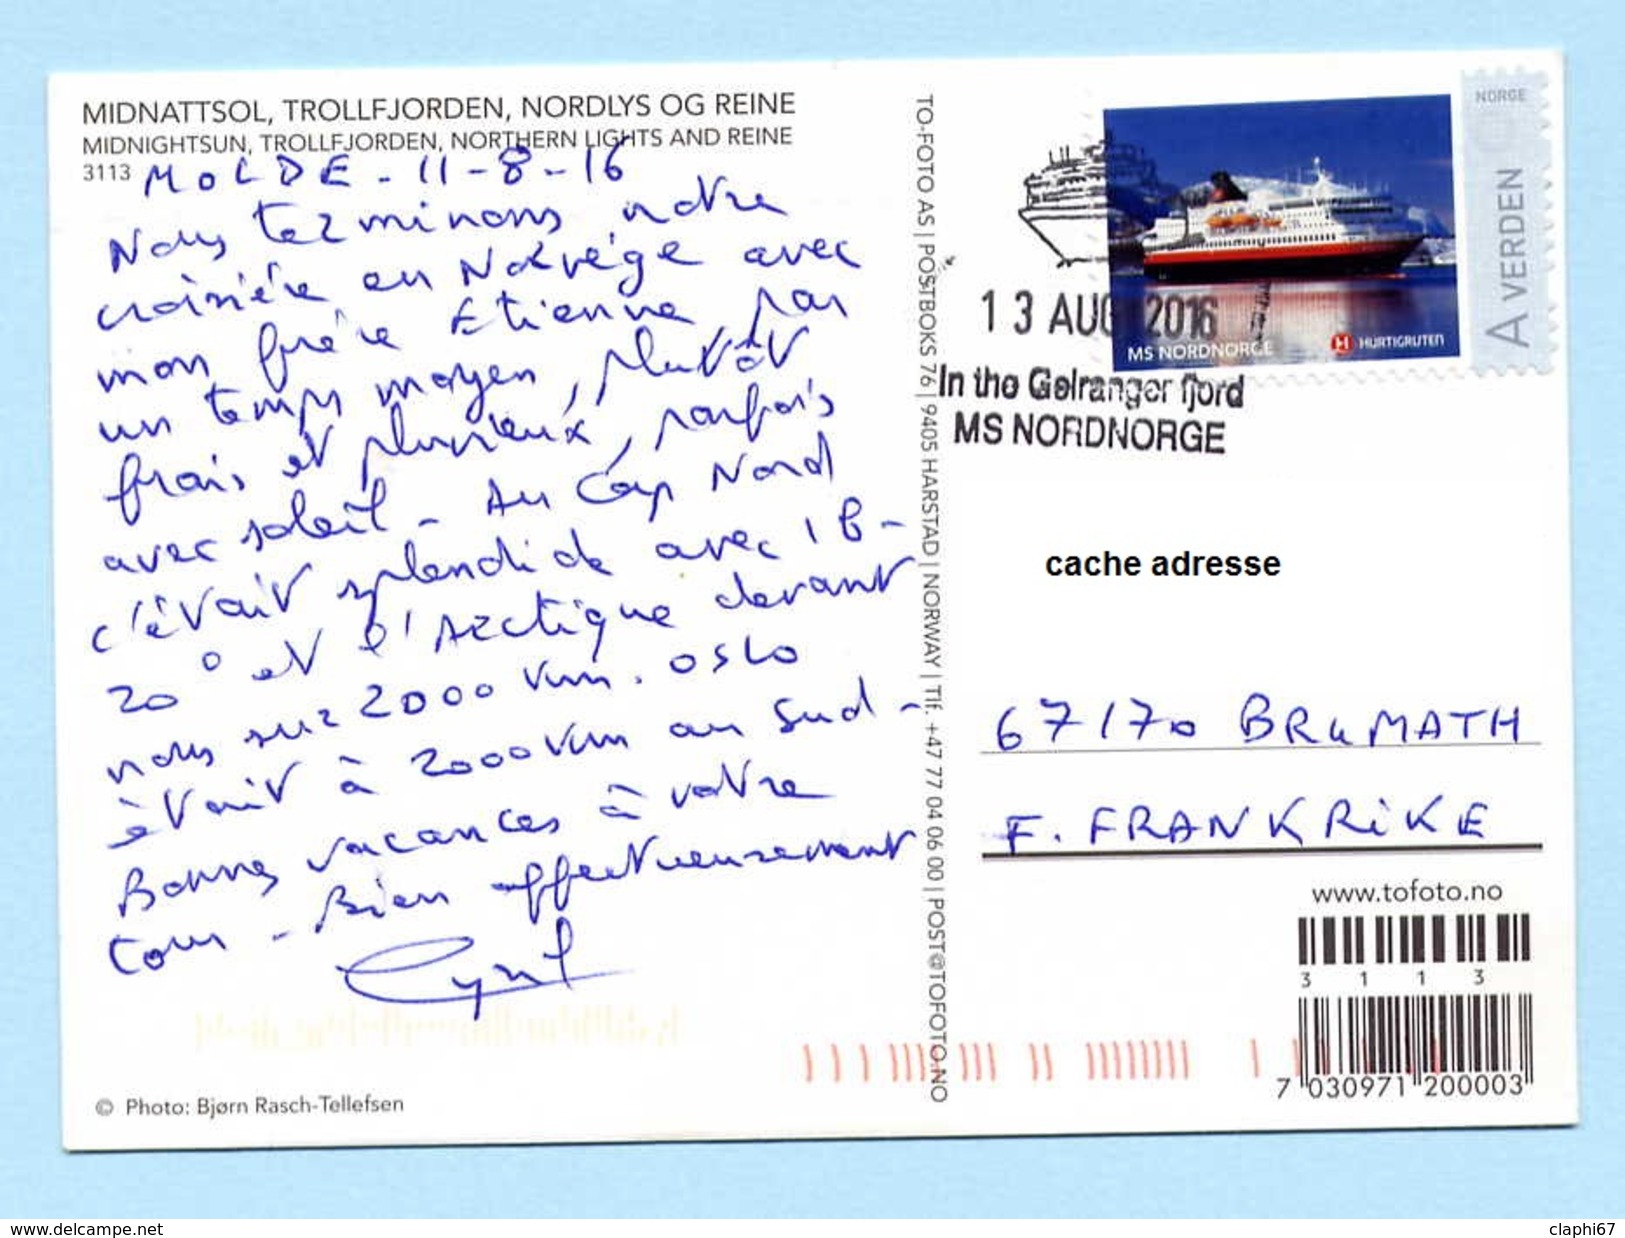 MIDNATTSOL, TROLLFJORDEN, NORDLYS OG REINE
MIDNIGHTSUN, TROLLFJORDEN, NORTHERN LIGHTS AND REINE
3113 MOLDE - 11-8-16
Nous terminons notre
croisière en Norvège avec
mon frère Etienne par
un temps moyen, plutôt
frais et pluvieux, parfois
avec soleil - Au Cap Nord
c'était splendide avec 18-
20° et l'Arctique devant
nous sur 2000 km. OSLO
était à 2000 km au sud -
Bonnes vacances à votre
tour - Bien affectueusement
Cyril
© Photo: Bjørn Rasch-Tellefsen
TO-FOTO AS | POSTBOKS 76 | 9405 HARSTAD | NORWAY | Tlf. +47 77 04 06 00 | POST@TOFOTO.NO
NORGE
A VERDEN
MS NORDNORGE
HURTIGRUTEN
13 AUG 2016
In the Geiranger fjord
MS NORDNORGE
cache adresse
67170 BRUMATH
F. FRANKRiKE
www.tofoto.no
3 1 1 3
7 030971 200003
www.delcampe.net
claphi67